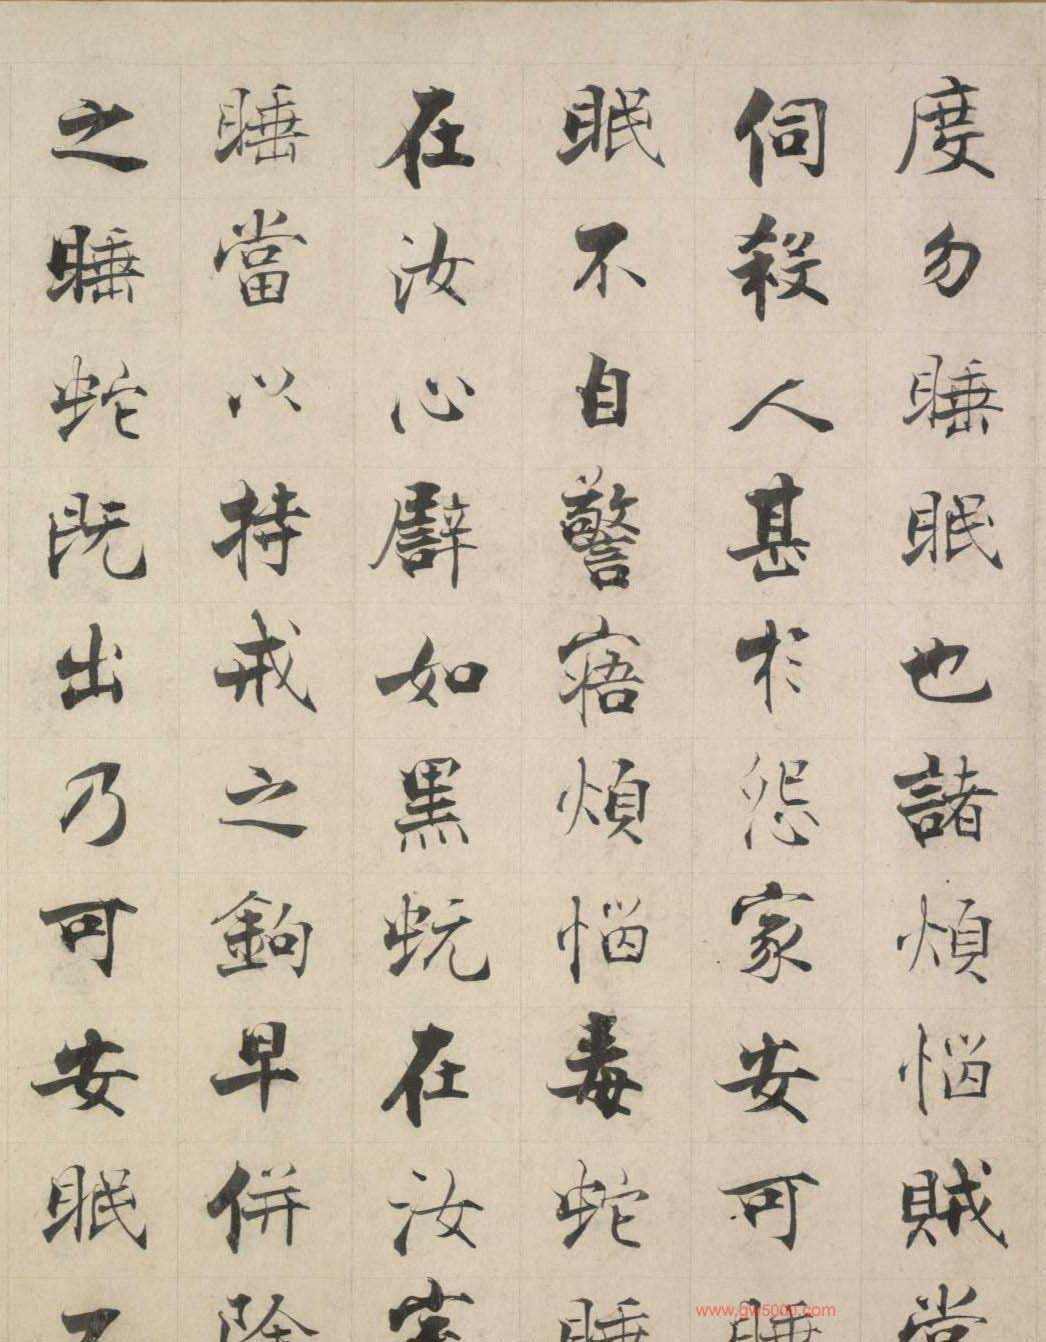 度勿睡眠也諸煩惱賊常
伺殺人甚於怨家安可睡
眠不自警寤煩惱毒蛇睡
在汝心譬如黑蚖在汝室
睡當以持戒之鉤早併除
之睡蛇既出乃可安眠不
www.gw5000.com